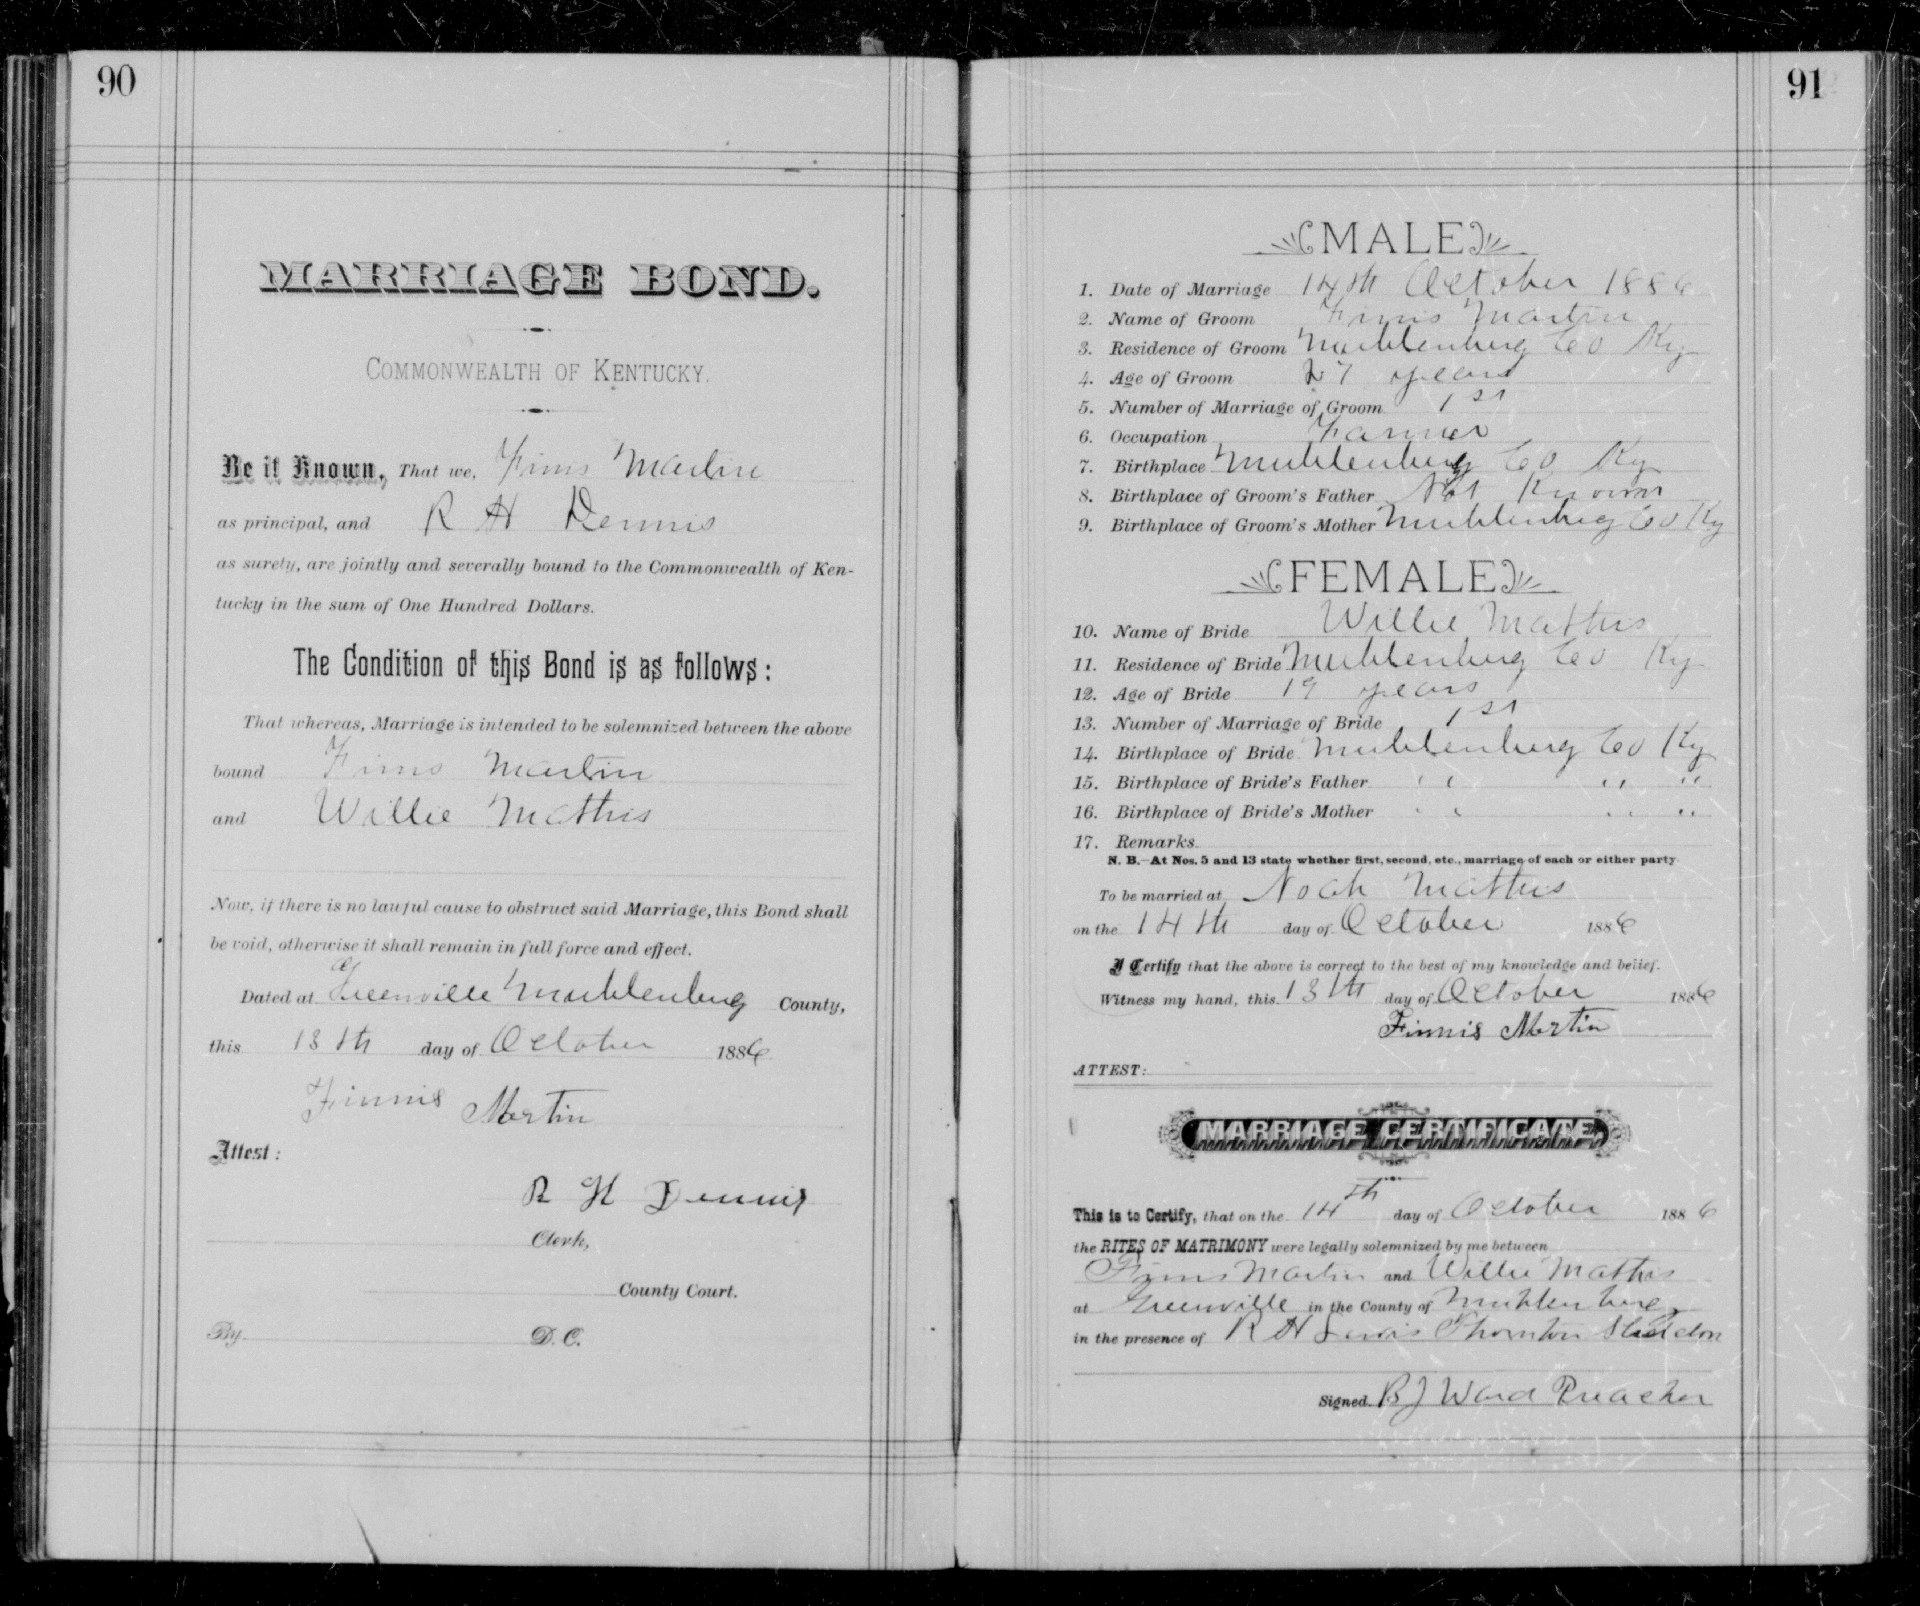 90
MARRIAGE BOND.
COMMONWEALTH OF KENTUCKY.
Be it Known, That we, Finis Martin
as principal, and R H Dennis
as surety, are jointly and severally bound to the Commonwealth of Ken-
tucky in the sum of One Hundred Dollars.
The Condition of this Bond is as follows:
That whereas, Marriage is intended to be solemnized between the above
bound Finis Martin
and Willie Mathis
Now, if there is no lawful cause to obstruct said Marriage, this Bond shall
be void, otherwise it shall remain in full force and effect.
Dated at Greenville Muhlenberg County,
this 13th day of October 1886
Finnis Martin
Attest:
R H Dennis
Clerk,
County Court.
By D. C.
91
MALE
1. Date of Marriage 14th October 1886
2. Name of Groom Finis Martin
3. Residence of Groom Muhlenberg Co Ky
4. Age of Groom 27 years
5. Number of Marriage of Groom 1st
6. Occupation Farmer
7. Birthplace Muhlenberg Co Ky
8. Birthplace of Groom's Father Not Known
9. Birthplace of Groom's Mother Muhlenberg Co Ky
FEMALE
10. Name of Bride Willie Mathis
11. Residence of Bride Muhlenberg Co Ky
12. Age of Bride 19 years
13. Number of Marriage of Bride 1st
14. Birthplace of Bride Muhlenberg Co Ky
15. Birthplace of Bride's Father " " "
16. Birthplace of Bride's Mother " " "
17. Remarks
N. B.—At Nos. 5 and 13 state whether first, second, etc., marriage of each or either party.
To be married at Noah Mathis
on the 14th day of October 1886
I Certify that the above is correct to the best of my knowledge and belief.
Witness my hand, this 13th day of October 1886
Finnis Martin
ATTEST:
MARRIAGE CERTIFICATE
This is to Certify, that on the 14th day of October 1886
the RITES OF MATRIMONY were legally solemnized by me between
Finis Martin and Willie Mathis
at Greenville in the County of Muhlenberg
in the presence of R H Lewis Thornton
Signed. B J Ward Preacher